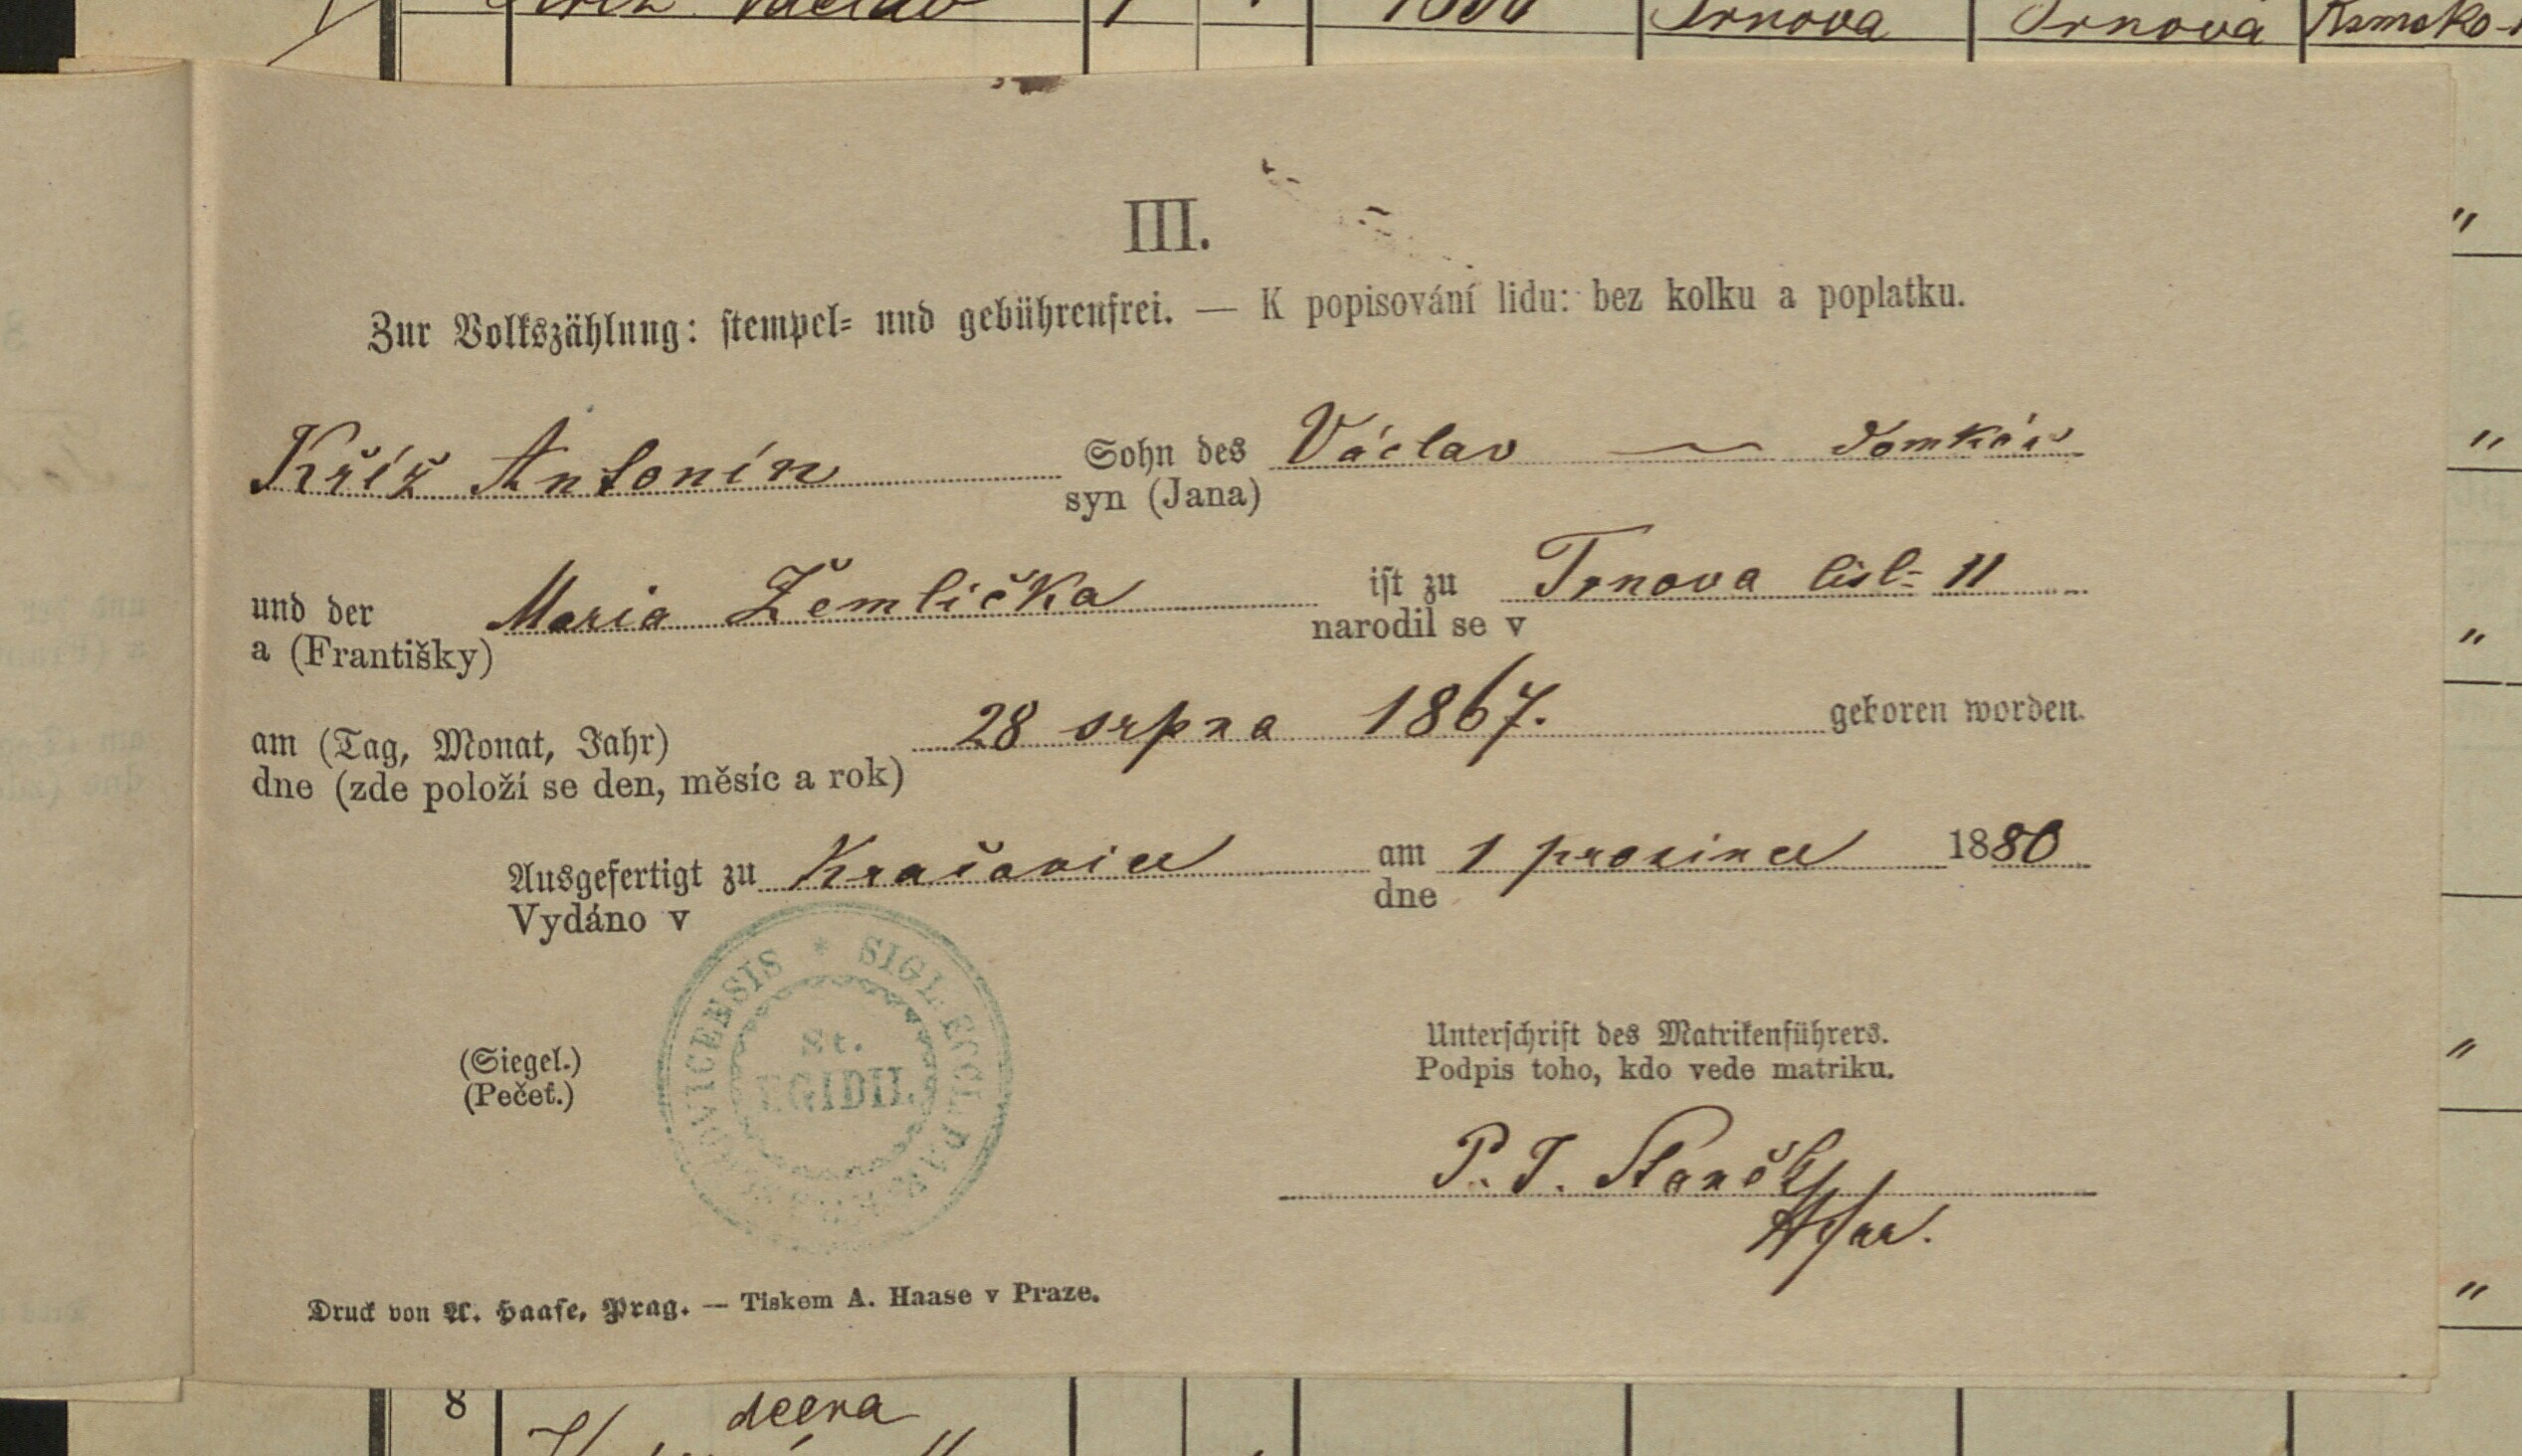 Václav 1 Trnova Trnová
III.
Zur Volkszählung: stempel- und gebührenfrei. — K popisování lidu: bez kolku a poplatku.
Kříž Antonín Sohn des Václav — domkář
syn (Jana)
und der Maria Žemlička ist zu Trnova čisl. 11
a (Františky) narodil se v
am (Tag, Monat, Jahr) 28 srpna 1867. geboren worden.
dne (zde položí se den, měsíc a rok)
Ausgefertigt zu Kračovice am 1 prosince 1880
Vydáno v dne
(Siegel.)
(Pečeť.)
* SIGL. ECCL. PAR. OVICEENSIS
St.
EGIDII.
Unterschrift des Matrikenführers.
Podpis toho, kdo vede matriku.
P. J. Staněk
Druck von A. Haase, Prag. — Tiskem A. Haase v Praze.
8 dcera